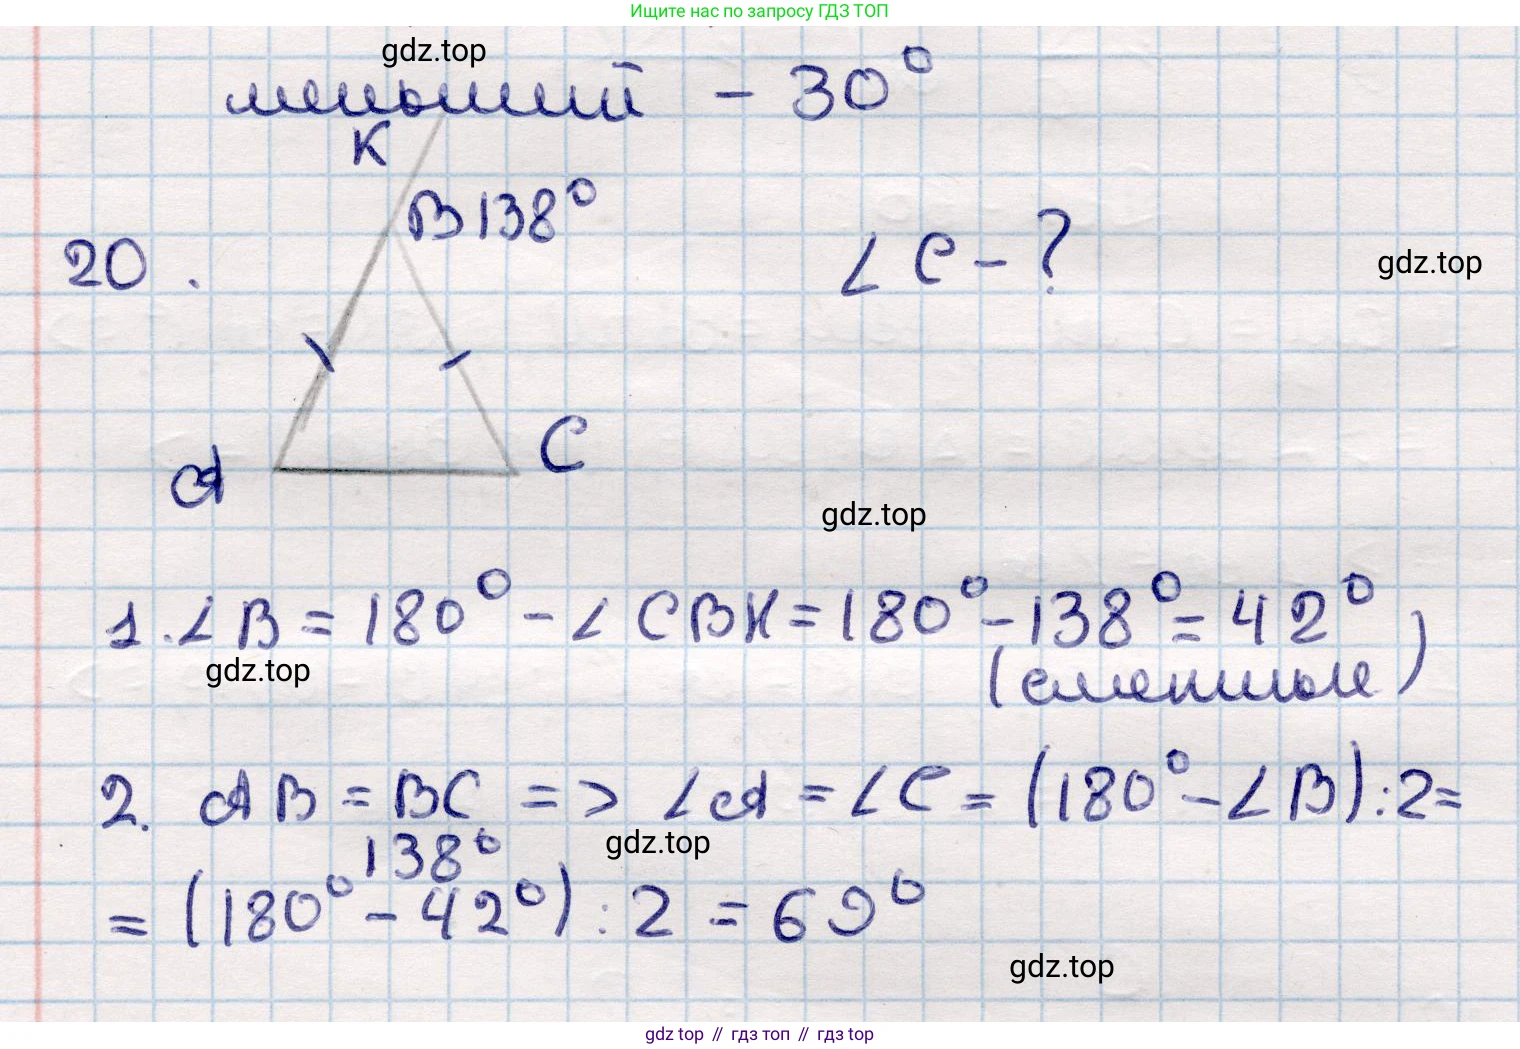 Ищите нас по запросу ГДЗ ТОП
gdz.top
меньший - 30°
K
B 138°
20.
∠C - ?
gdz.top
A
C
gdz.top
1. ∠B = 180° - ∠CBK = 180° - 138° = 42°
(смежные)
gdz.top
2. AB = BC => ∠A = ∠C = (180° - ∠B) : 2 =
138°
gdz.top
= (180° - 42°) : 2 = 69°
gdz.top
gdz top // гдз топ // гдз top